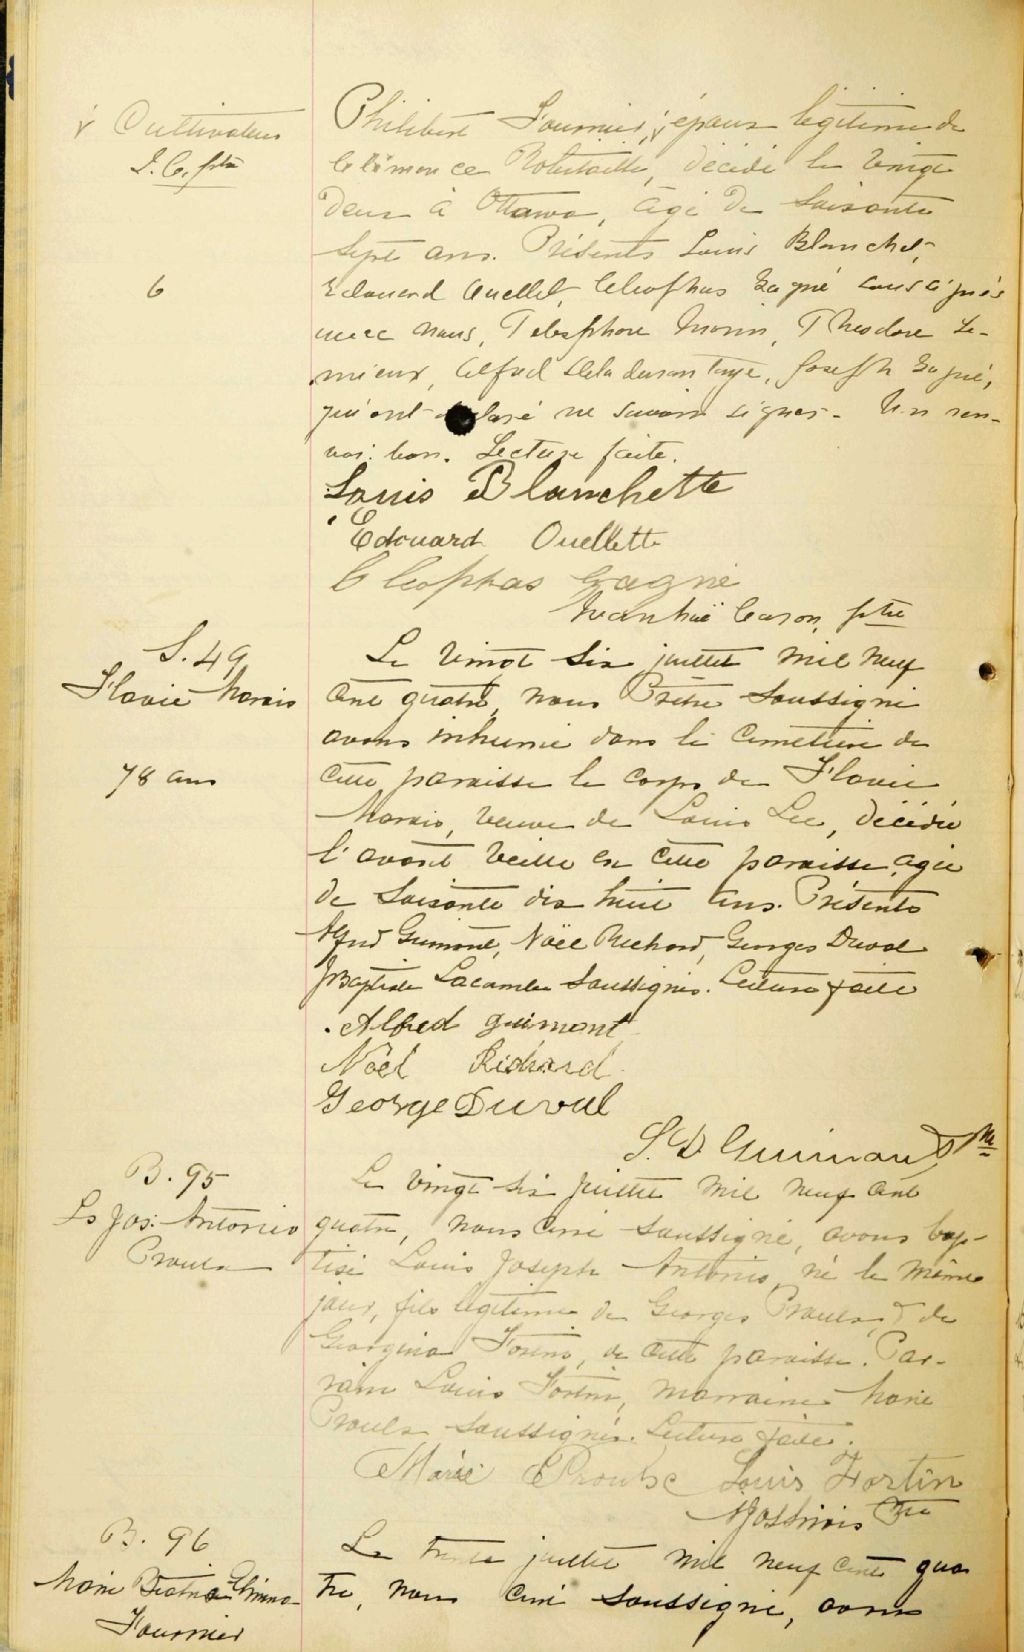 √ Cultivateur
I. C. ptre
Philibert Fournier, √, époux légitime de
Clémence Robitaille, décédé le vingt
deux à Ottawa, âgé de soixante
sept ans. Présents Louis Blanchet,
Edouard Ouellet, Cléophas Gagné soussignés
6
avec nous, Télesphore Morin, Théodore Le-
mieux, Alfred Deladurantaye, Joseph Gagné,
qui ont déclaré ne savoir signer. Un ren-
voi: bon. Lecture faite.
Louis Blanchette
Edouard Ouellette
Cléophas Gagné
Ivanhoë Caron, ptre
S. 49
Flavie Morais
78 ans
Le vingt six juillet mil neuf
cent quatre, nous Prêtre soussigné
avons inhumé dans le cimetière de
cette paroisse le corps de Flavie
Morais, veuve de Louis Lee, décédée
l'avant veille en cette paroisse, agée
de soixante dix huit ans. Présents
Alfred Guimont, Noël Richard, Georges Duval
JBaptiste Lacombe soussignés. Lecture faite
Alfred guimont
Noël Richard
George Duval
S. D. Guimont, Ptre
B. 95
Ls Jos: Antonio
Proulx
Le vingt six juillet mil neuf cent
quatre, nous curé soussigné, avons bap-
tisé Louis Joseph Antonio, né le même
jour, fils légitime de Georges Proulx, & de
Georgina Fortin, de cette paroisse. Par-
rain Louis Fortin, marraine Marie
Proulx soussignés. Lecture faite.
Marie Proulx Louis Fortin
Ptre
B. 96
Marie Beatrice
Fournier
Le trente juillet mil neuf cent qua
tre, nous curé soussigné, avons